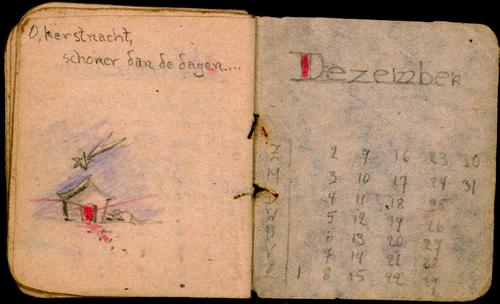 O, kerstnacht,
schoner dan de dagen....
Dezember
Z 2 9 16 23 30
M 3 10 17 24 31
D 4 11 18 25
W 5 12 19 26
D 6 13 20 27
V 7 14 21 28
Z 1 8 15 22 29